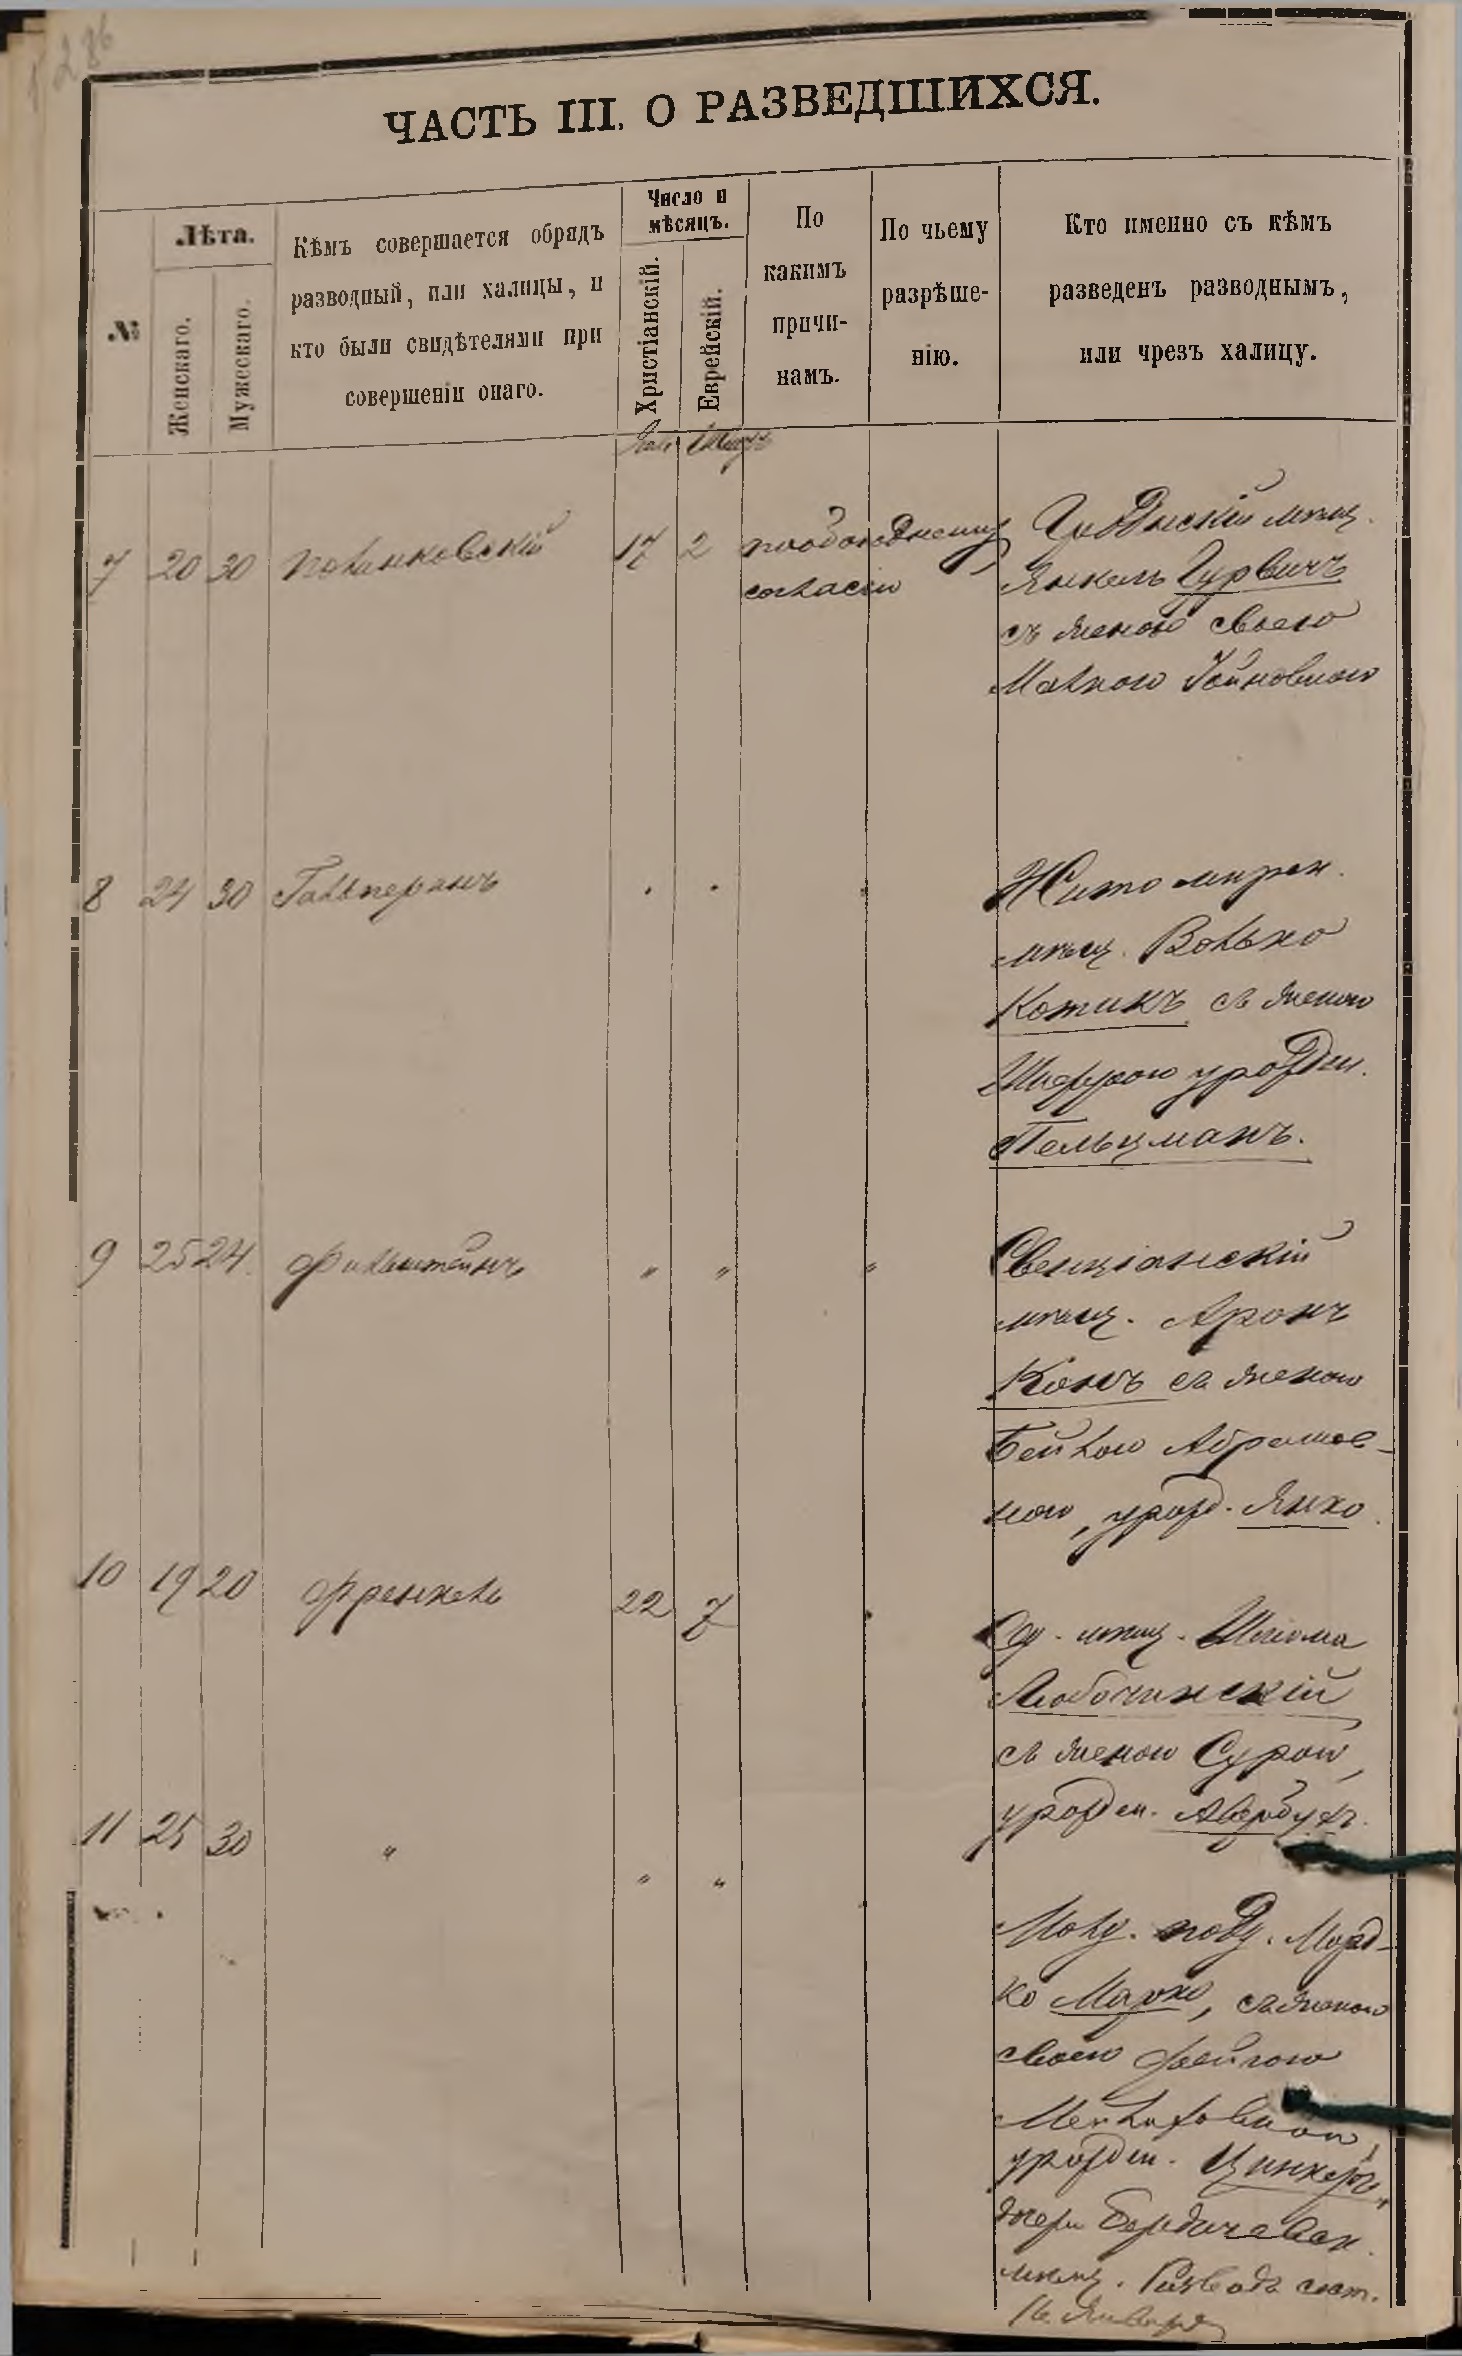 286
ЧАСТЬ III. О РАЗВЕДШИХСЯ.
№
Лѣта.
Женскаго.
Мужескаго.
Кѣмъ совершается обрядъ
разводный, или халицы, и
кто были свидѣтелями при
совершеніи онаго.
Число и
мѣсяцъ.
Христіанскій.
Еврейскій.
По
какимъ
причи-
намъ.
По чьему
разрѣше-
нію.
Кто именно съ кѣмъ
разведенъ разводнымъ,
или чрезъ халицу.
7 20 30 Полинковскій 17 2
согласію
мѣщ.
Янкель Гурвичъ
съ женою своею
Малкою
8 24 30 Гальперинъ
Житомирск.
мѣщ. Волько
Котикъ съ женою
Шифрою урожден.
Пельцманъ.
9 25 24 Финкельштейнъ " " "
Свенціанскій
мѣщ. Аронъ
Конъ съ женою
Бейлою Абрамов-
ною, урожд. Янко.
10 19 20 Френкель 22 7
Од. мѣщ. Шлiома
Любочинскій
съ женою Сурою,
урожден. Авербухъ.
11 25 30 " " "
Молд. подд. Морд-
ко Марко, съ женою
своею Фейгою
урожден.
дочерь Бердичевск.
мѣщ. Разводъ сост.
16 Января